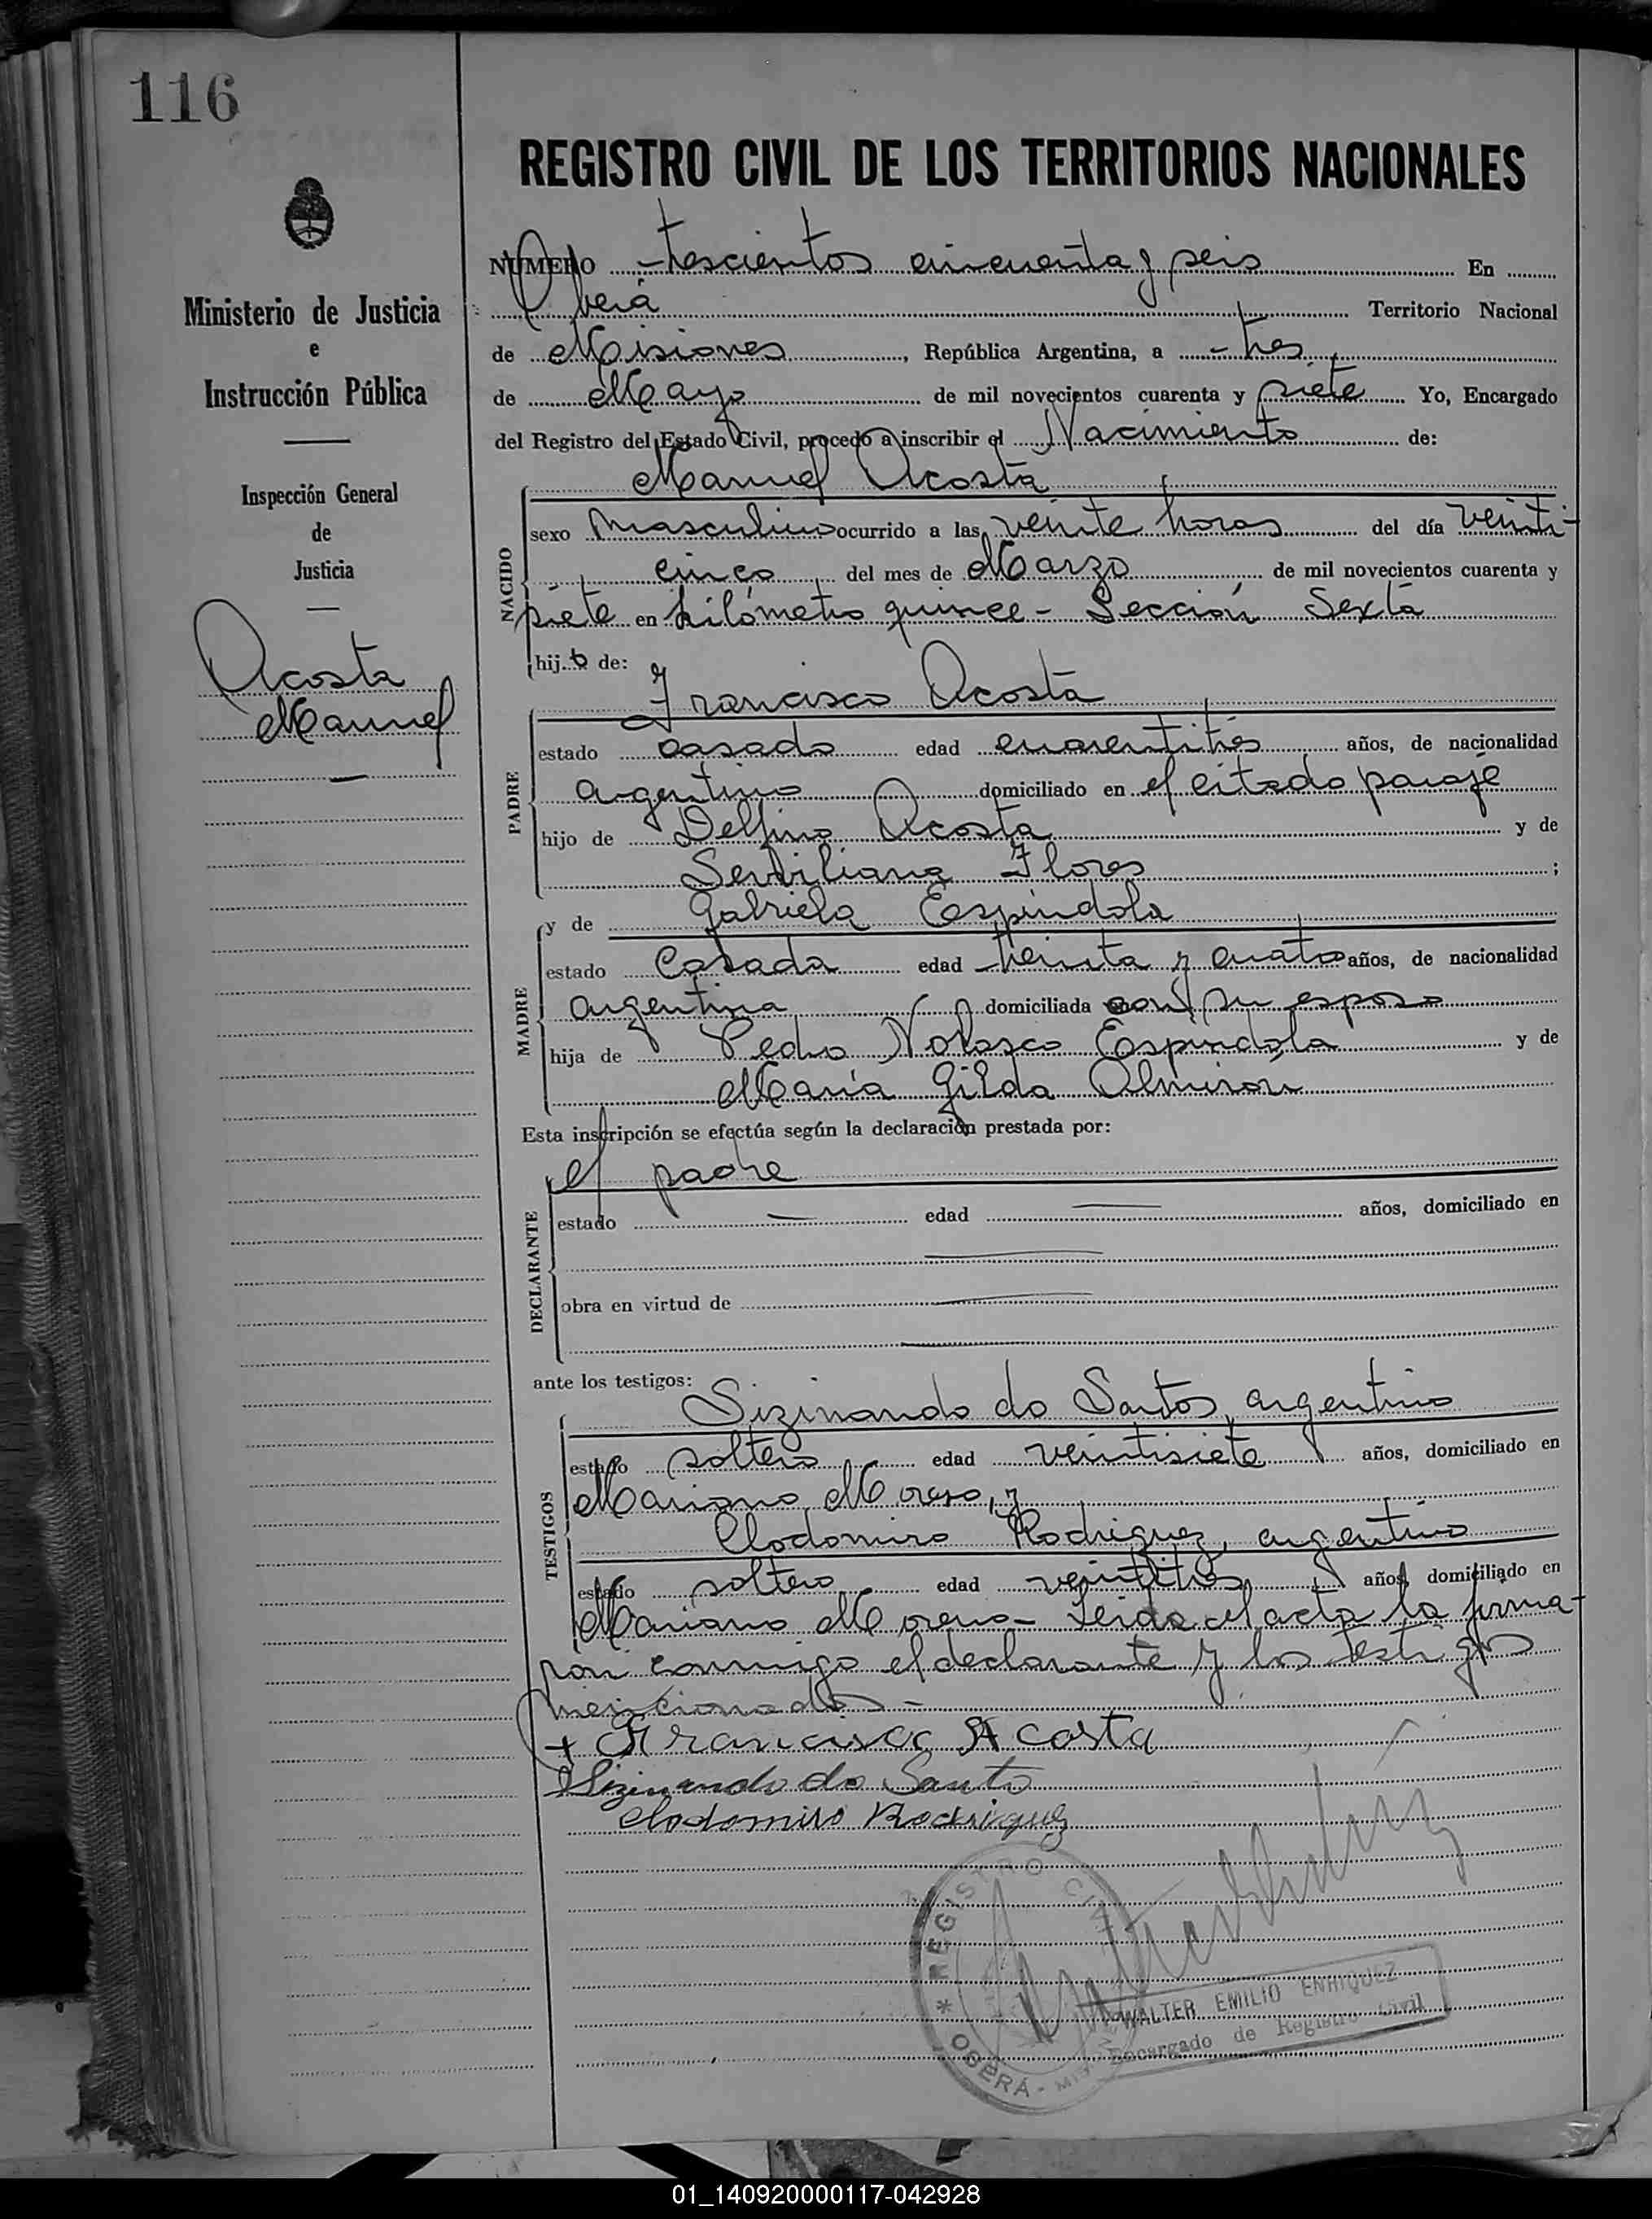 116
REGISTRO CIVIL DE LOS TERRITORIOS NACIONALES
Ministerio de Justicia
e
Instrucción Pública
Inspección General
de
Justicia
Acosta
Manuel
NUMERO trescientos cincuenta y seis En
Oberá Territorio Nacional
de Misiones, República Argentina, a tres
de Mayo de mil novecientos cuarenta y siete Yo, Encargado
del Registro del Estado Civil, procedo a inscribir el Nacimiento de:
Manuel Acosta
NACIDO
sexo masculino ocurrido a las veinte horas del día veinti-
cinco del mes de Marzo de mil novecientos cuarenta y
siete en kilómetro quince - Sección Sexta
hijo de:
Francisco Acosta
PADRE
estado casado edad cuarentitrés años, de nacionalidad
argentino domiciliado en el citado paraje
hijo de Delfino Acosta y de
Serviliana Flores ;
y de Gabriela Espíndola
MADRE
estado Casada edad treinta y cuatro años, de nacionalidad
argentina domiciliada con su esposo
hija de Pedro Nolasco Espíndola y de
María Gilda Almirón
Esta inscripción se efectúa según la declaración prestada por:
el padre
DECLARANTE
estado — edad — años, domiciliado en
obra en virtud de
ante los testigos:
Sizinando do Santos, argentino
TESTIGOS
estado soltero edad veintisiete años, domiciliado en
Mariano Moreno, y
Clodomiro Rodriguez, argentino
estado soltero edad veintitrés años, domiciliado en
Mariano Moreno - Leida el acta la firma-
ron conmigo el declarante y los testigos
mencionados -
+ Francisco Acosta
Sizinando do Santo
Clodomiro Rodriguez
REGISTRO CIVIL
* OBERÁ - MISIONES
WALTER EMILIO ENRIQUEZ
Encargado de Registro Civil
01_140920000117-042928